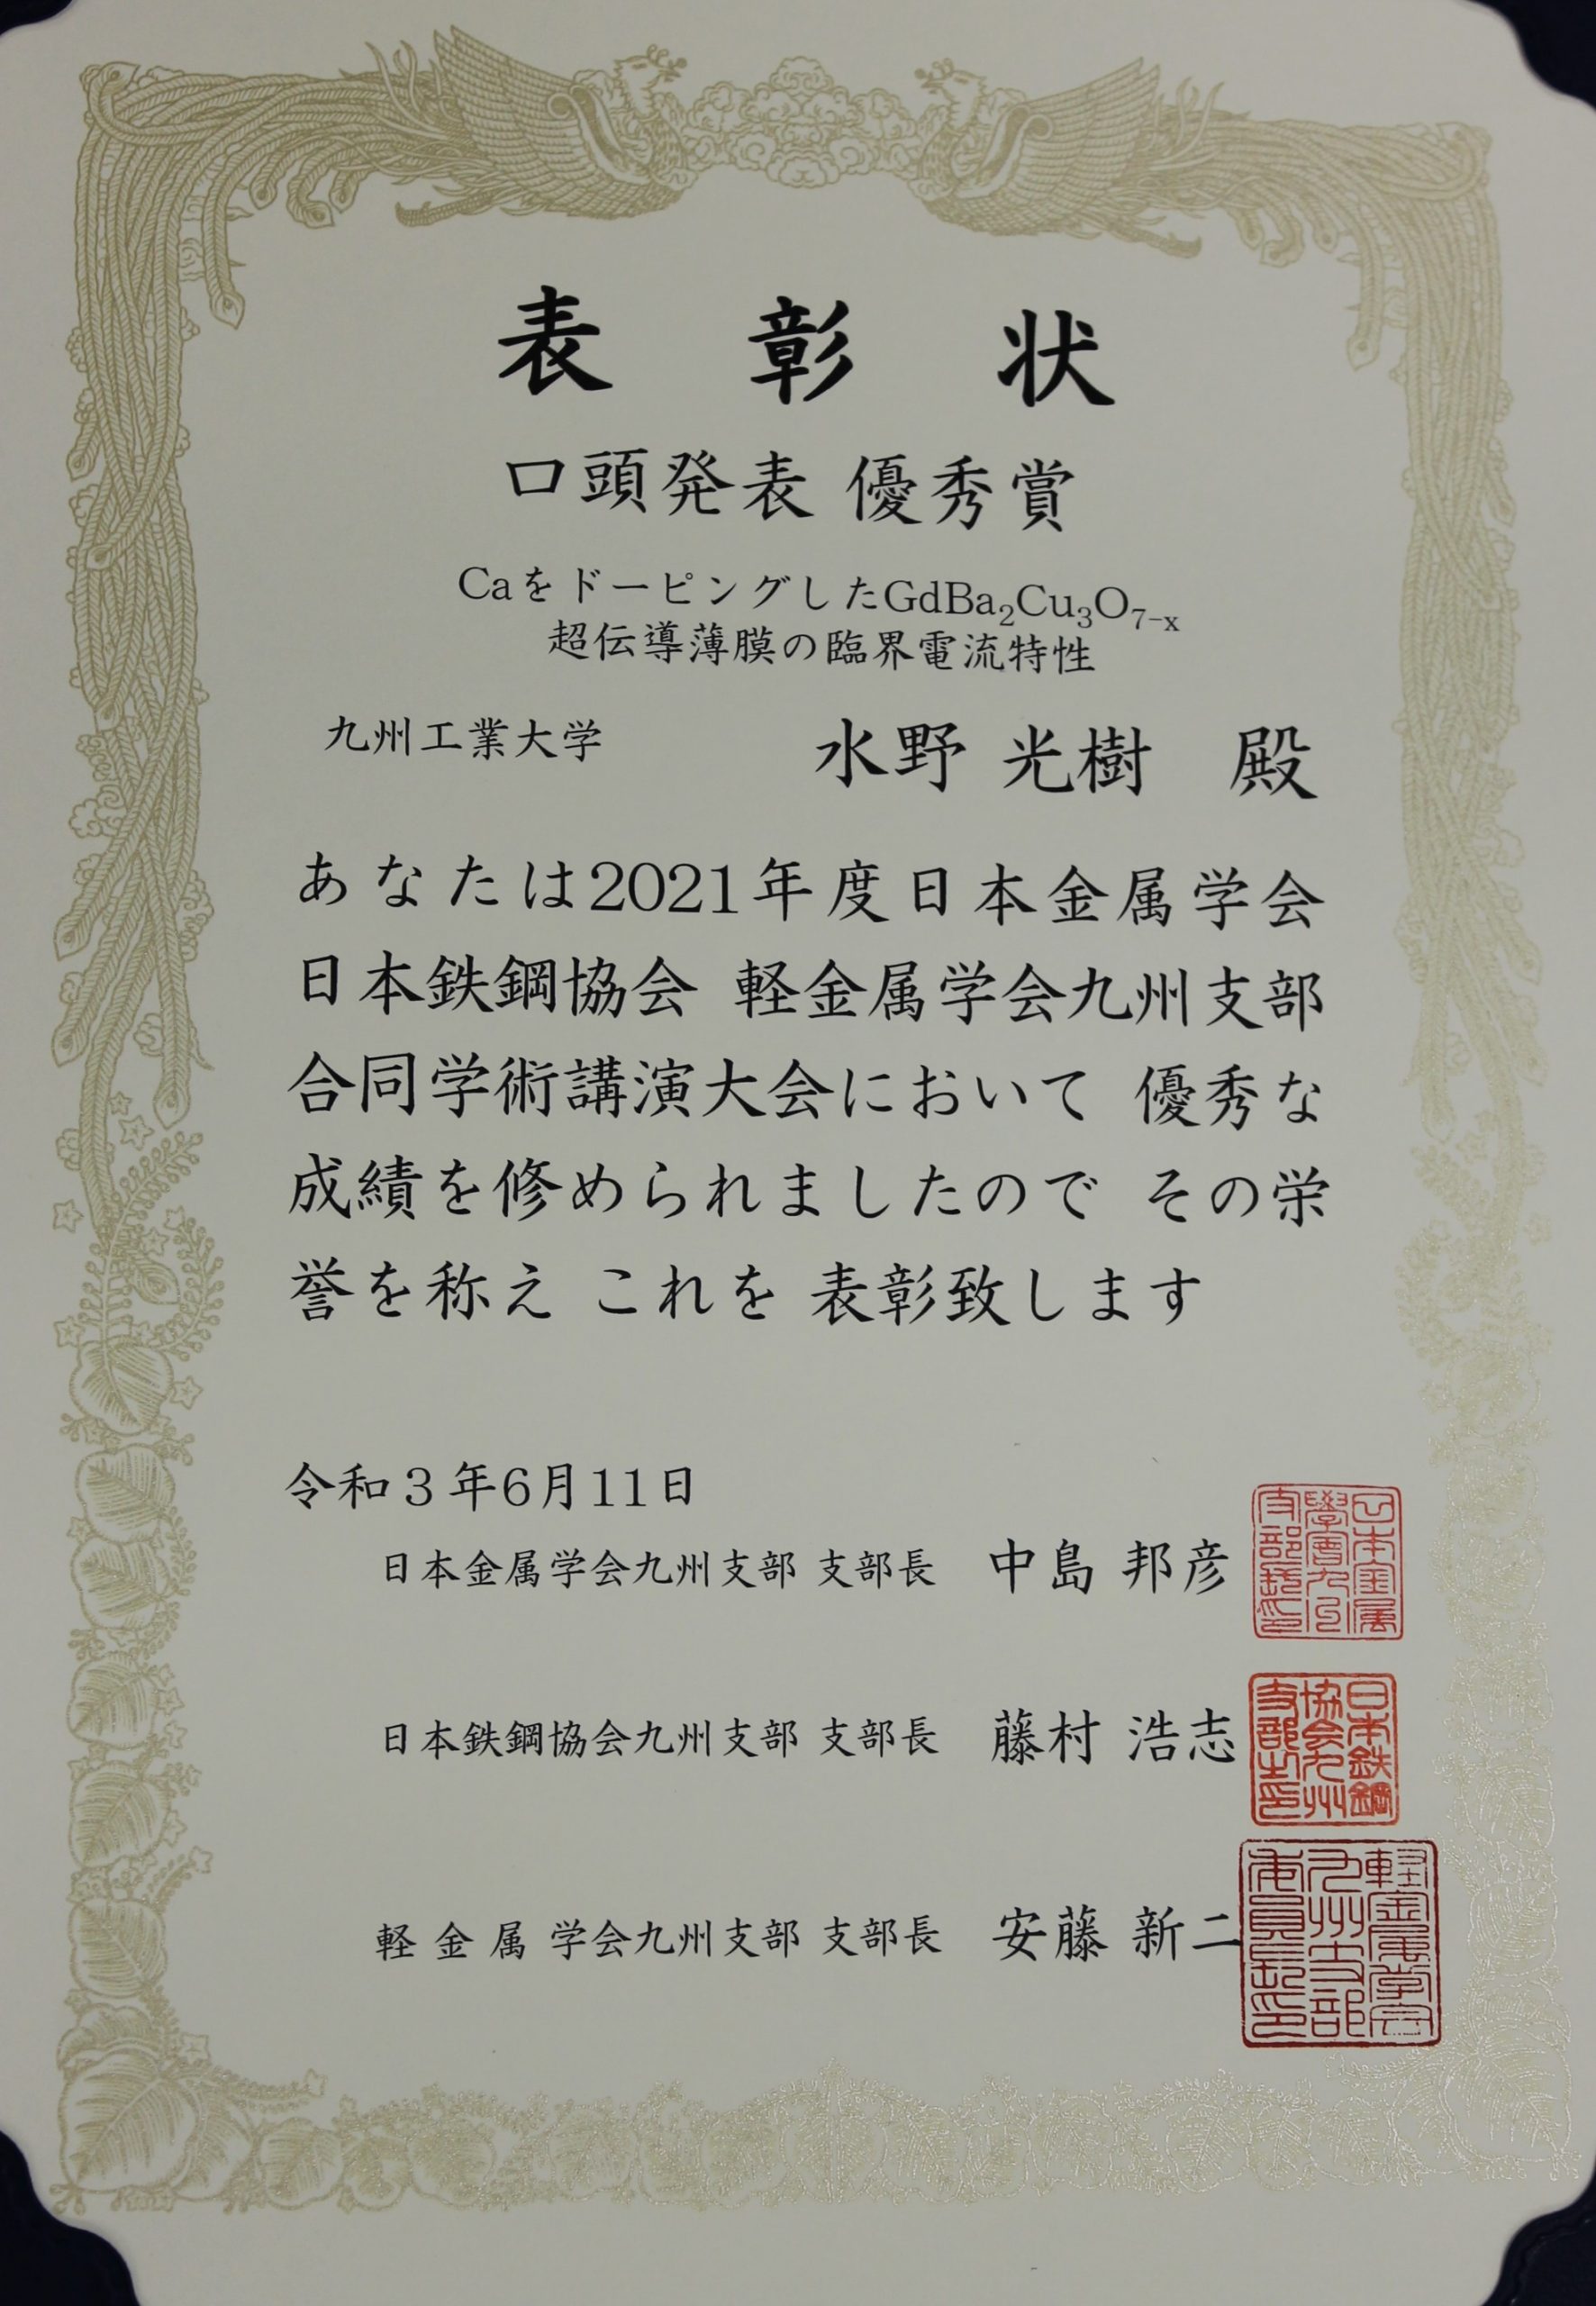 表彰状
口頭発表 優秀賞
CaをドーピングしたGdBa₂Cu₃O₇₋ₓ
超伝導薄膜の臨界電流特性
九州工業大学 水野 光樹 殿
あなたは2021年度日本金属学会
日本鉄鋼協会 軽金属学会九州支部
合同学術講演大会において 優秀な
成績を修められましたので その栄
誉を称え これを 表彰致します
令和3年6月11日
日本金属学会九州支部 支部長 中島 邦彦
日本鉄鋼協会九州支部 支部長 藤村 浩志
日本鉄鋼協会九州支部
軽金属学会九州支部 支部長 安藤 新二
軽金属学会九州支部